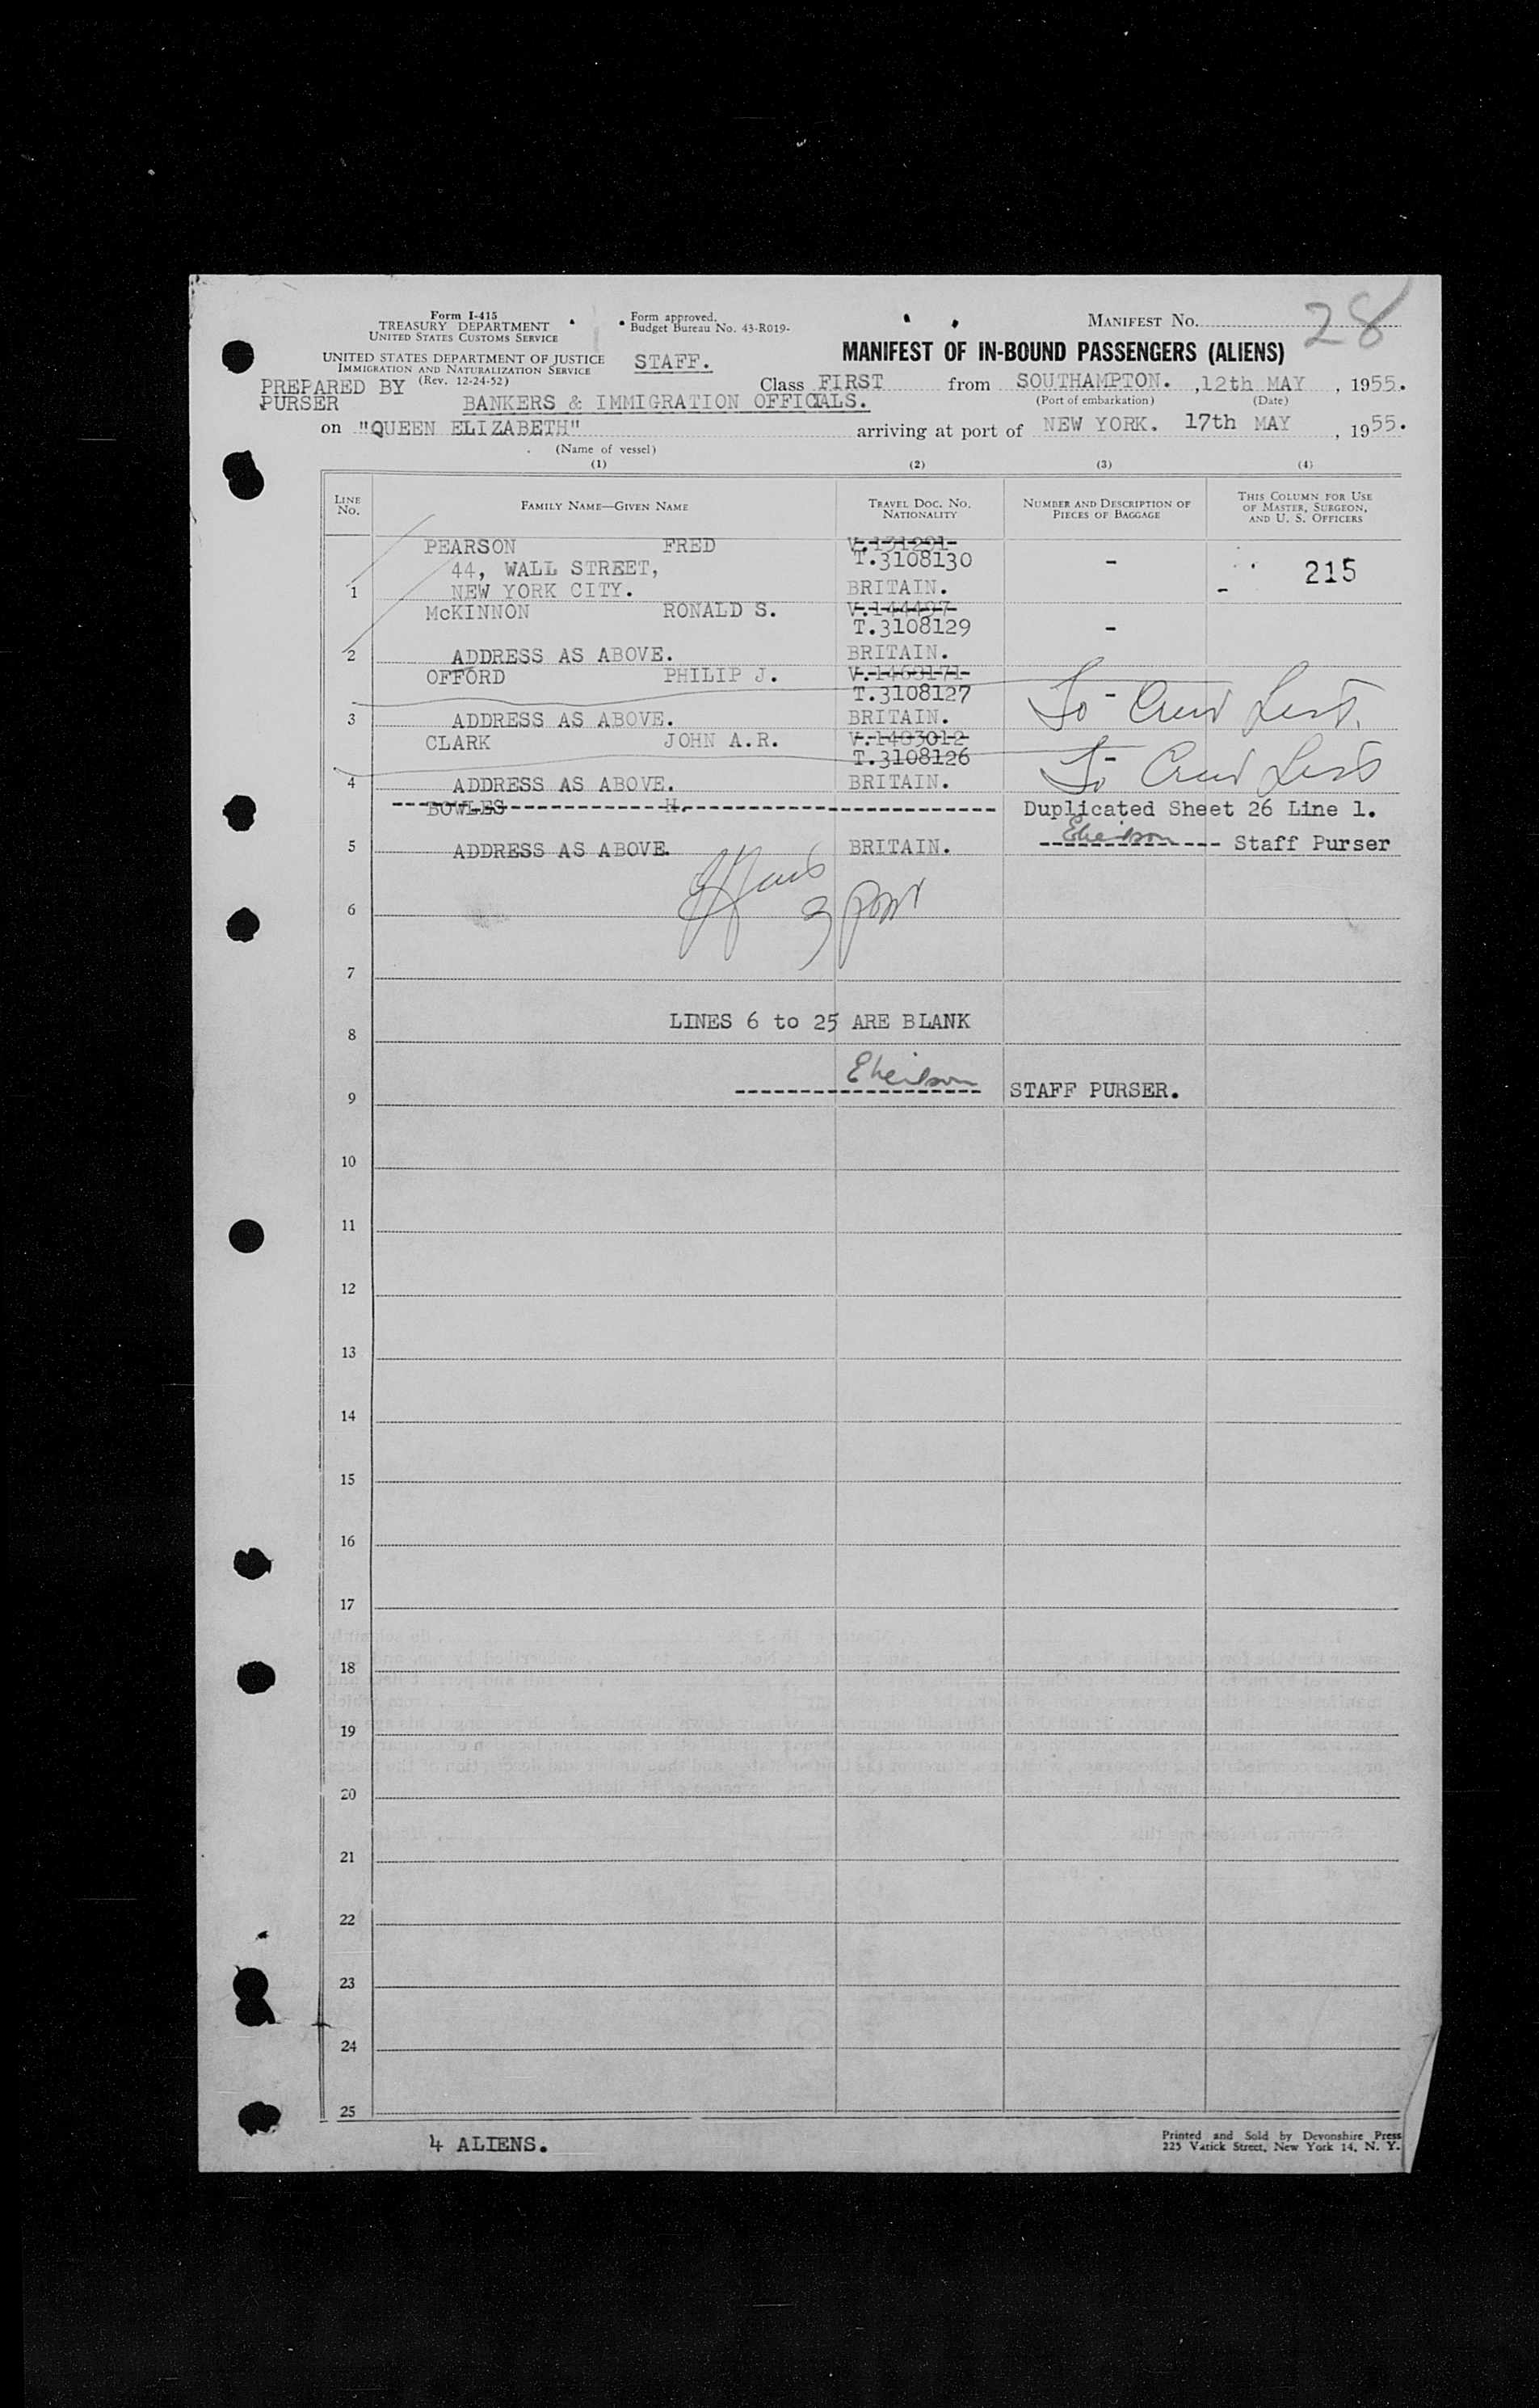 Form I-415
TREASURY DEPARTMENT
UNITED STATES CUSTOMS SERVICE
Form approved.
Budget Bureau No. 43-R019-
MANIFEST NO. 28
UNITED STATES DEPARTMENT OF JUSTICE
IMMIGRATION AND NATURALIZATION SERVICE
(Rev. 12-24-52)
STAFF.
MANIFEST OF IN-BOUND PASSENGERS (ALIENS)
PREPARED BY
PURSER
Class FIRST from SOUTHAMPTON. , 12th MAY , 1955.
(Port of embarkation) (Date)
BANKERS & IMMIGRATION OFFICIALS.
on "QUEEN ELIZABETH" arriving at port of NEW YORK. 17th MAY , 1955.
(Name of vessel)
(1) (2) (3) (4)
LINE NO.
FAMILY NAME—GIVEN NAME
TRAVEL DOC. NO. NATIONALITY
NUMBER AND DESCRIPTION OF PIECES OF BAGGAGE
THIS COLUMN FOR USE OF MASTER, SURGEON, AND U. S. OFFICERS
PEARSON FRED V.131291
44, WALL STREET, T.3108130 - 215
1 NEW YORK CITY. BRITAIN. -
McKINNON RONALD S. V.144497
T.3108129 -
2 ADDRESS AS ABOVE. BRITAIN.
OFFORD PHILIP J. V.1463171
T.3108127 - To Crew List.
3 ADDRESS AS ABOVE. BRITAIN.
CLARK JOHN A.R. V.1483012
T.3108126 - To Crew List
4 ADDRESS AS ABOVE. BRITAIN.
BOWLES H. Duplicated Sheet 26 Line 1.
5 ADDRESS AS ABOVE. BRITAIN. Staff Purser
6
7
LINES 6 to 25 ARE BLANK
8
9 STAFF PURSER.
10
11
12
13
14
15
16
17
18
19
20
21
22
23
24
25
4 ALIENS.
Printed and Sold by Devonshire Press
225 Varick Street, New York 14, N. Y.